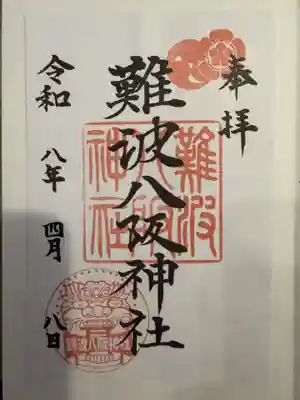 奉拝
難波八阪神社
令和八年四月八日
難波
八阪
神社
難波八阪神社